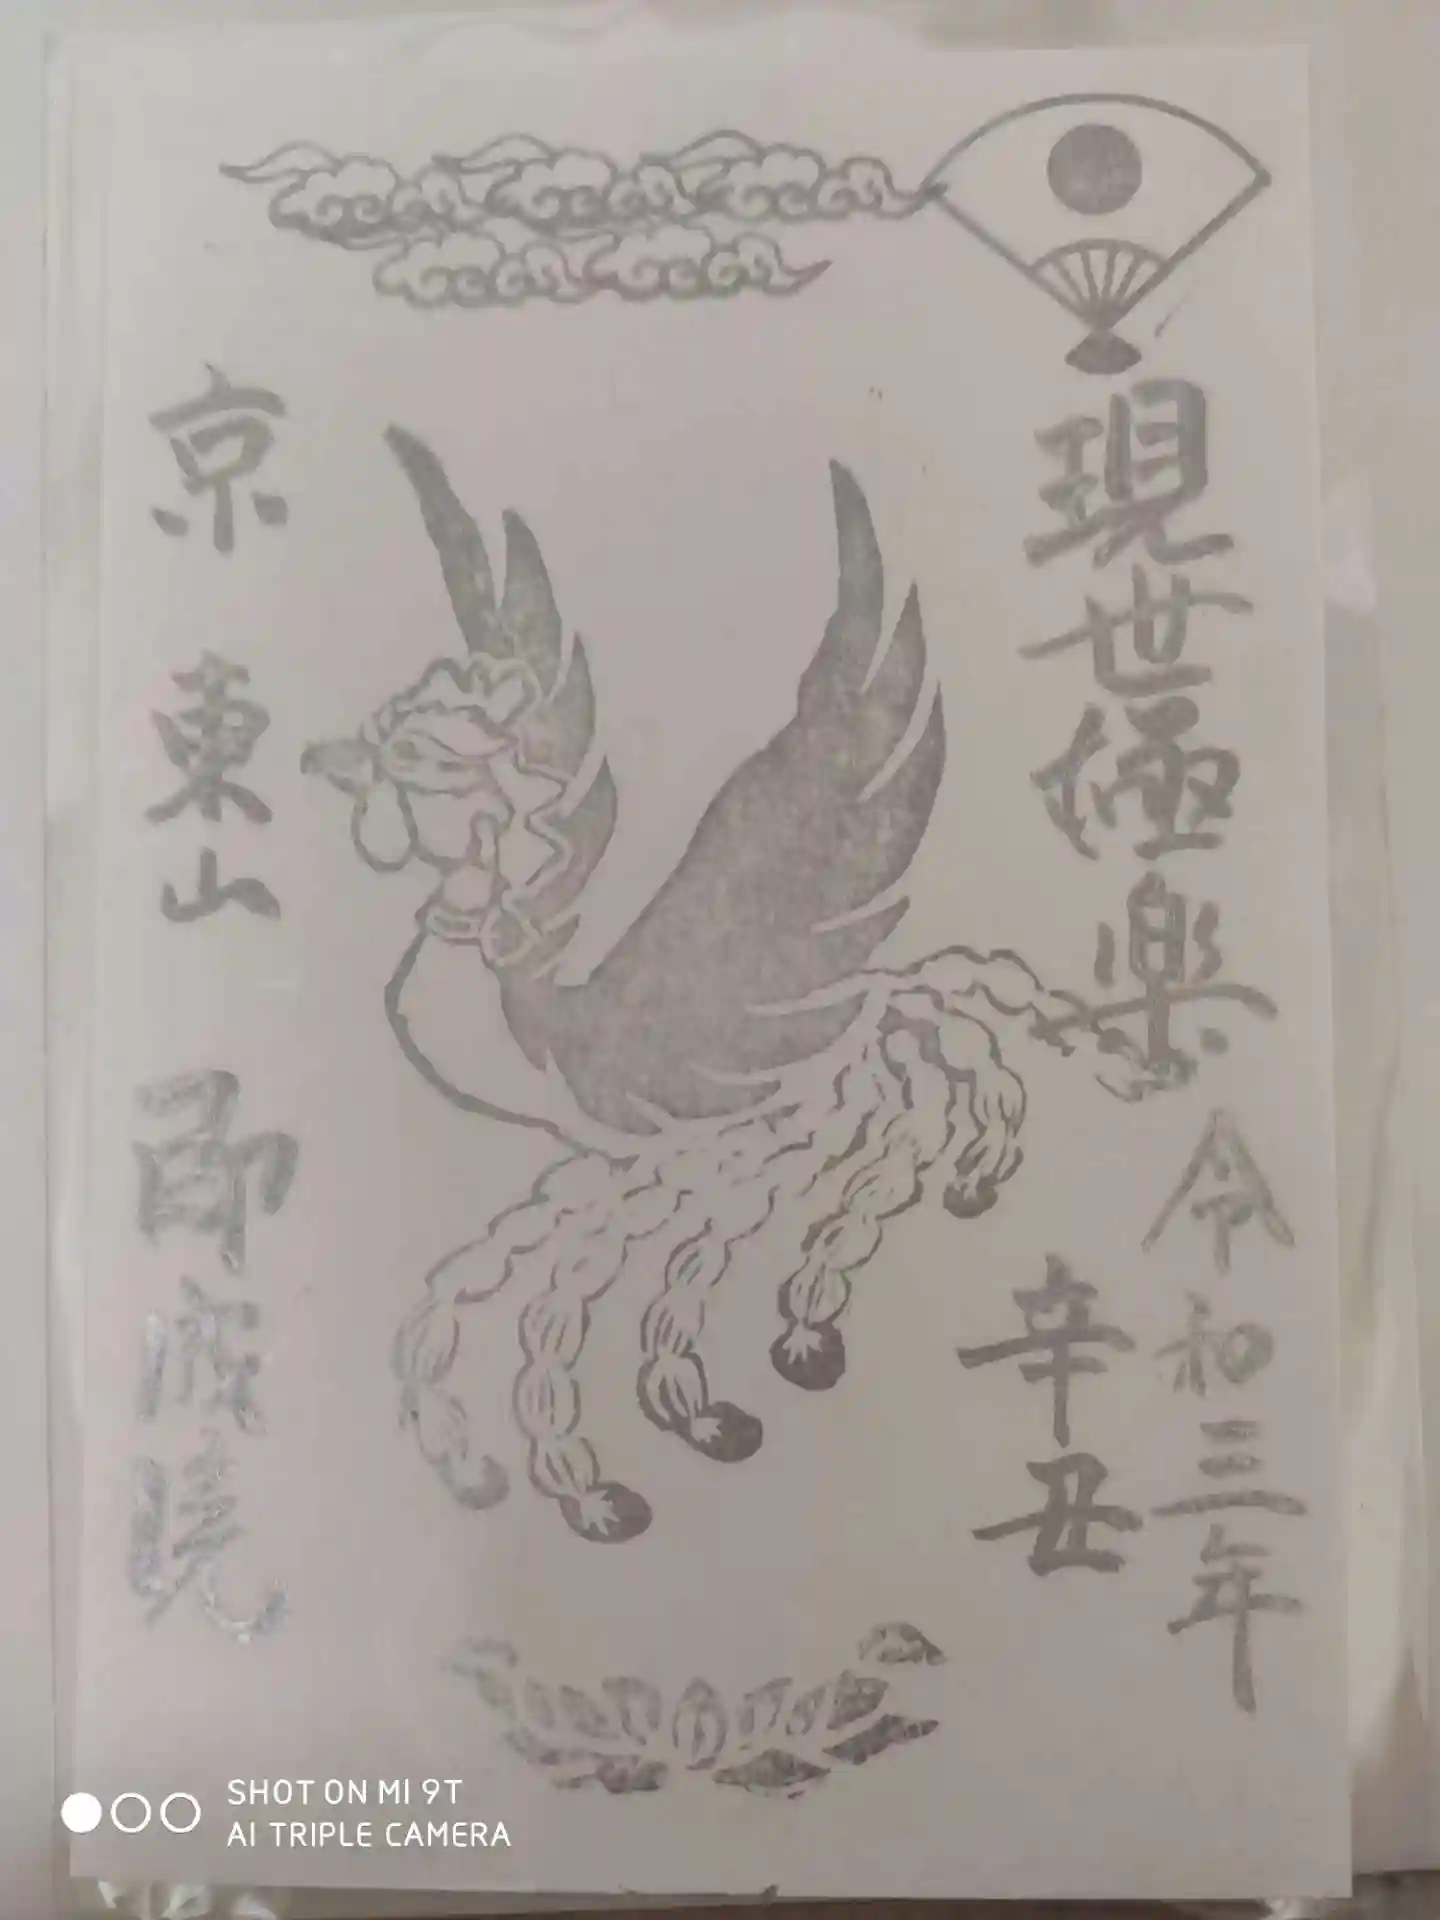 現世極楽
令和三年
辛丑
京 東山 即成院
SHOT ON MI 9T
AI TRIPLE CAMERA